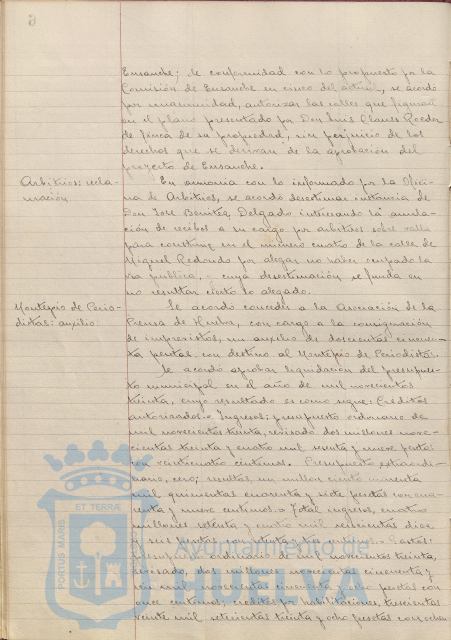 Ensanche; de conformidad con lo propuesto por la
Comisión de Ensanche en cinco del actual, se acordó
por unanimidad, autorizar las calles que figuran
en el plano presentado por Don Luis Claros
de finca de su propiedad, sin perjuicio de los
derechos que se derivan de la aprobación del
proyecto de Ensanche.
Arbitrios: recla-
mación
En armonía con lo informado por la Ofici-
na de Arbitrios, se acordó desestimar instancia de
Don José Benítez Delgado interesando la anula-
ción de recibos a su cargo por arbitrios sobre valla
para construir en el número cuatro de la calle de
Miguel Redondo por alegar no haber ocupado la
vía pública, cuya desestimación se funda en
no resultar cierto lo alegado.
Montepío de Perio-
distas: auxilio
Se acordó conceder a la Asociación de la
Prensa de Huelva, con cargo a la consignación
de imprevistos, un auxilio de doscientas cincuen-
ta pesetas con destino al Montepío de Periodistas.
Se acordó aprobar liquidación del presupues-
to municipal en el año de mil novecientos
treinta, cuyo resultado es como sigue: Créditos
autorizados.= Ingresos; presupuesto ordinario de
mil novecientos treinta, revisado dos millones nove-
cientas treinta y cuatro mil setenta y nueve pesetas
con veinticuatro céntimos. Presupuesto extraordi-
nario, cero; resultas, un millón ciento cuarenta
mil quinientas cuarenta y siete pesetas con cua-
renta y nueve céntimos.= Total ingresos, cuatro
millones setenta y cuatro mil seiscientas diez
y seis pesetas con setenta y tres céntimos.= Gastos:
presupuesto ordinario de mil novecientos treinta,
revisado, dos millones novecientas cincuenta y
mil novecientas cincuenta y ocho pesetas con
once céntimos; créditos por habilitaciones, trescientas
veinte mil setecientas treinta y ocho pesetas con ochen
PORTUS MARIS ET TERRÆ
Ayuntamiento de
HUELVA